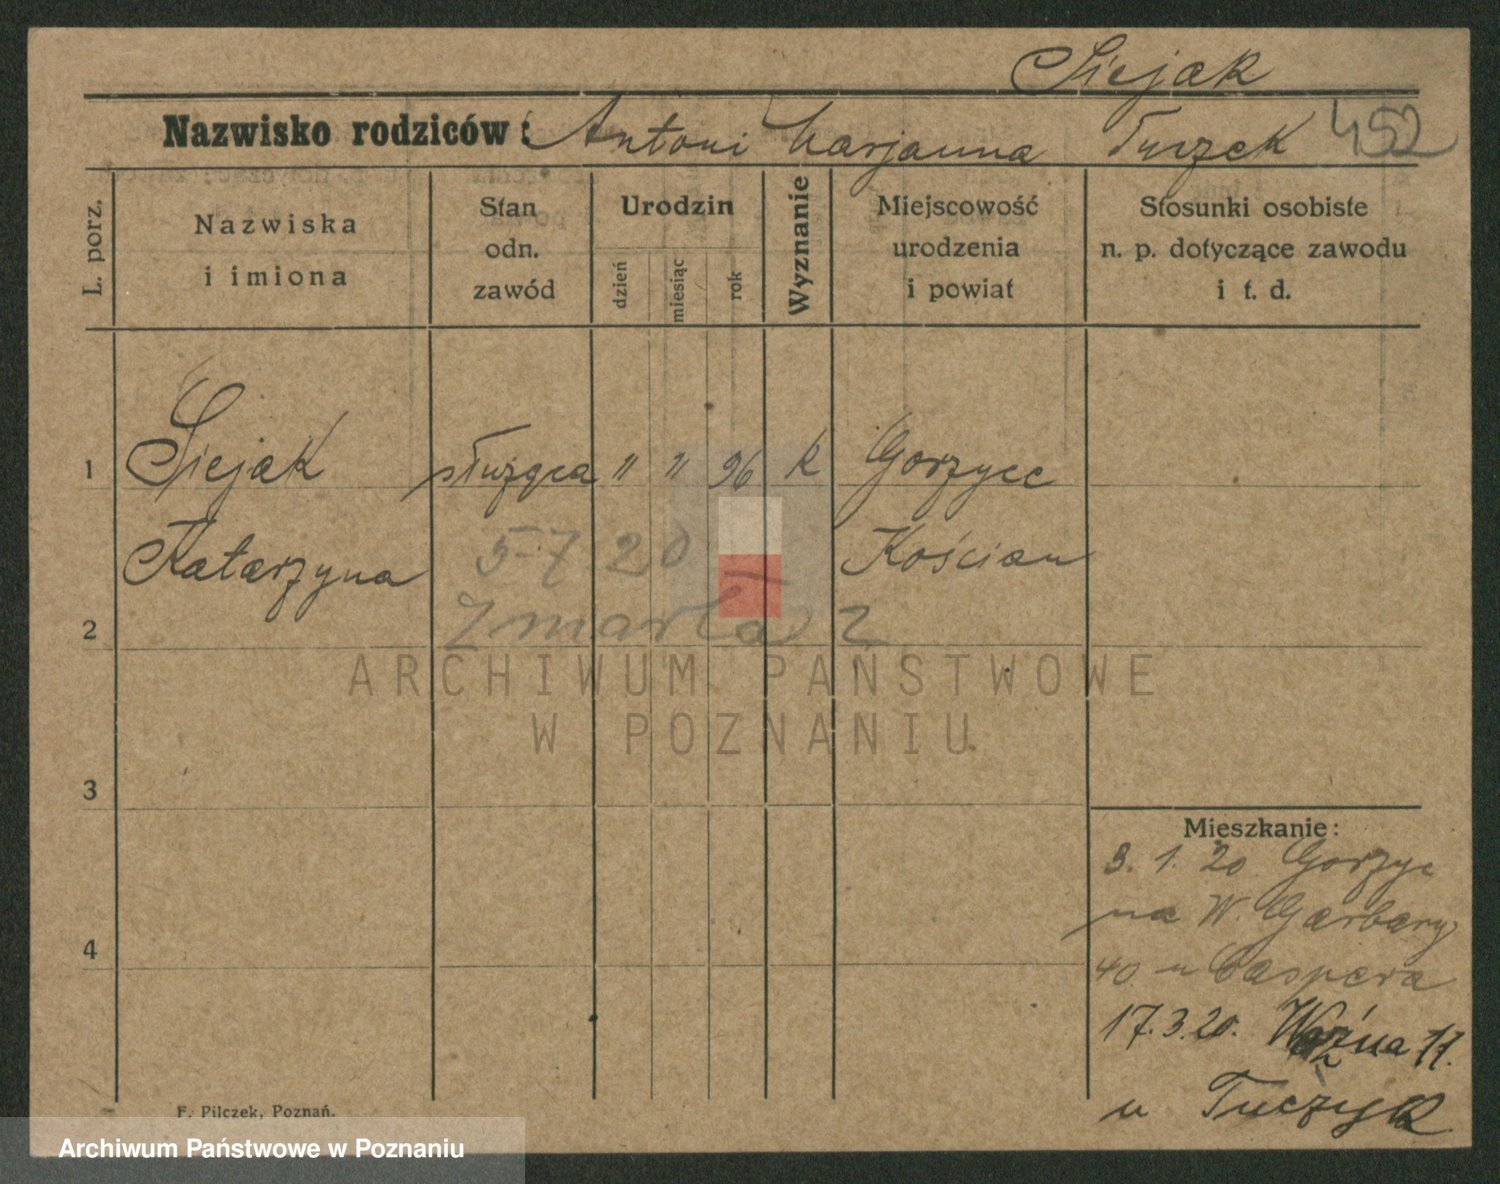 Siejak
Nazwisko rodziców: Antoni Marjanna Turzek 452
L. porz.
Nazwiska
i imiona
Stan
odn.
zawód
Urodzin
dzień
miesiąc
rok
Wyznanie
Miejscowość
urodzenia
i powiat
Stosunki osobiste
n. p. dotyczące zawodu
i t. d.
1 Siejak służąca " " 96 k Gorzyce
Katarzyna Kościan
5-7 20
zmarła
2
3
4
Mieszkanie:
3. 1. 20 Gorzyc
na W. Garbary
40 u Caspera
17.3.20. Woźna 11.
u Tuczyk
F. Pilczek, Poznań.
ARCHIWUM PAŃSTWOWE
W POZNANIU
Archiwum Państwowe w Poznaniu